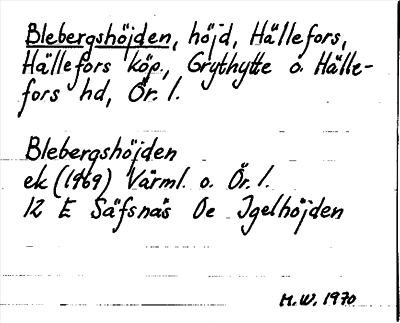 Blebergshöjden, höjd, Hällefors,
Hällefors köp., Grythytte o. Hälle-
fors hd, Ör. l.
Blebergshöjden
ek (1969) Värml. o. Ör. l.
12 E Säfsnäs 0e Igelhöjden
M.W. 1970